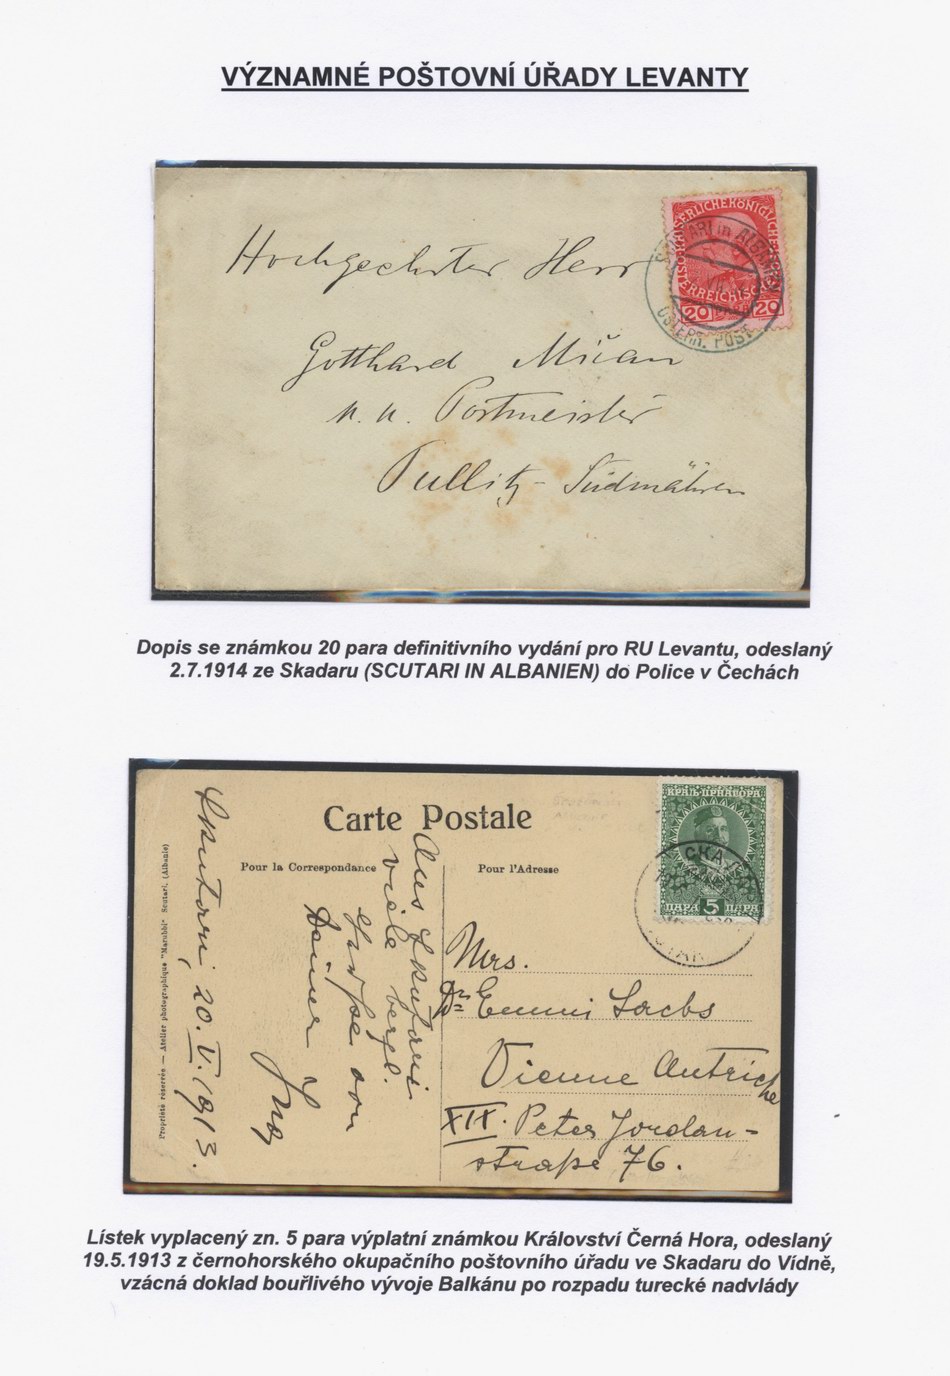 VÝZNAMNÉ POŠTOVNÍ ÚŘADY LEVANTY
Hochgeehrter Herr
Gotthard Mičan
k. k. Postmeister
Pullitz - Südmähren
SCUTARI in ALBANIEN
ÖSTERR. POST
20 20
Dopis se známkou 20 para definitivního vydání pro RU Levantu, odeslaný
2.7.1914 ze Skadaru (SCUTARI IN ALBANIEN) do Police v Čechách
Carte Postale
Pour la Correspondance
Pour l'Adresse
КРАЉ. ЦРНАГОРА
ПАРА 5 ПАРА
Propriété reservée — Atelier photographique "Marubbi" Scutari. (Albanie)
Skutari, 20. V. 1913.
Aus Skutari
viele herzl.
Grüße von
Deiner
Mrs.
Dr Emmi Sachs
Vienne Autriche
XIX. Peter Jordan-
straße 76.
Lístek vyplacený zn. 5 para výplatní známkou Království Černá Hora, odeslaný
19.5.1913 z černohorského okupačního poštovního úřadu ve Skadaru do Vídně,
vzácná doklad bouřlivého vývoje Balkánu po rozpadu turecké nadvlády